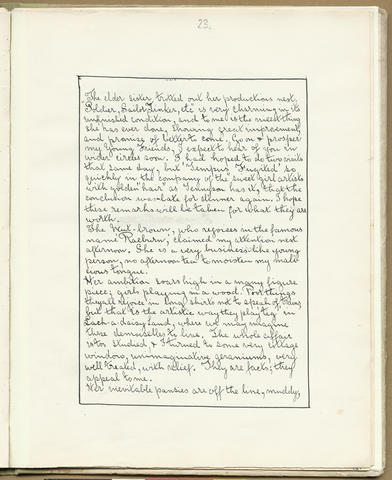 23.
The elder sister trotted out her productions next,
"Soldier, Sailor Tinker, etc" is very charming in its
unfinished condition, and to me is the nicest thing
she has ever done, showing great improvement,
and promise of better to come. Go on & prosper
my Young Friends, I expect to hear of you in
wider circles soon. I had hoped to do two visits
that same day, but "Tempus Fugited" so
quickly in the company of the "sweet girl artists
with golden hair" as Tennyson has it, that the
conclusion was late for dinner again. I hope
these remarks will be taken for what they are
worth.
The Nut-brown, who rejoices in the famous
name "Raeburn", claimed my attention next
afternoon. She is a very business-like young
person, no afternoon tea to moisten my mali-
cious tongue.
Her ambition soars high in a many figure
piece; girls playing in a wood. Poor things
they all rejoice in long shirts not to speak of
but that is the artistic way they play "tig" in
such a daisy land, where we may imagine
these demoiselles to live. The whole affair
is too studied, & I turned to some very
window, unimaginative geraniums, very
well treated, with relief. They are facts; they
appeal to me.
Her inevitable pansies are off the line, muddy,